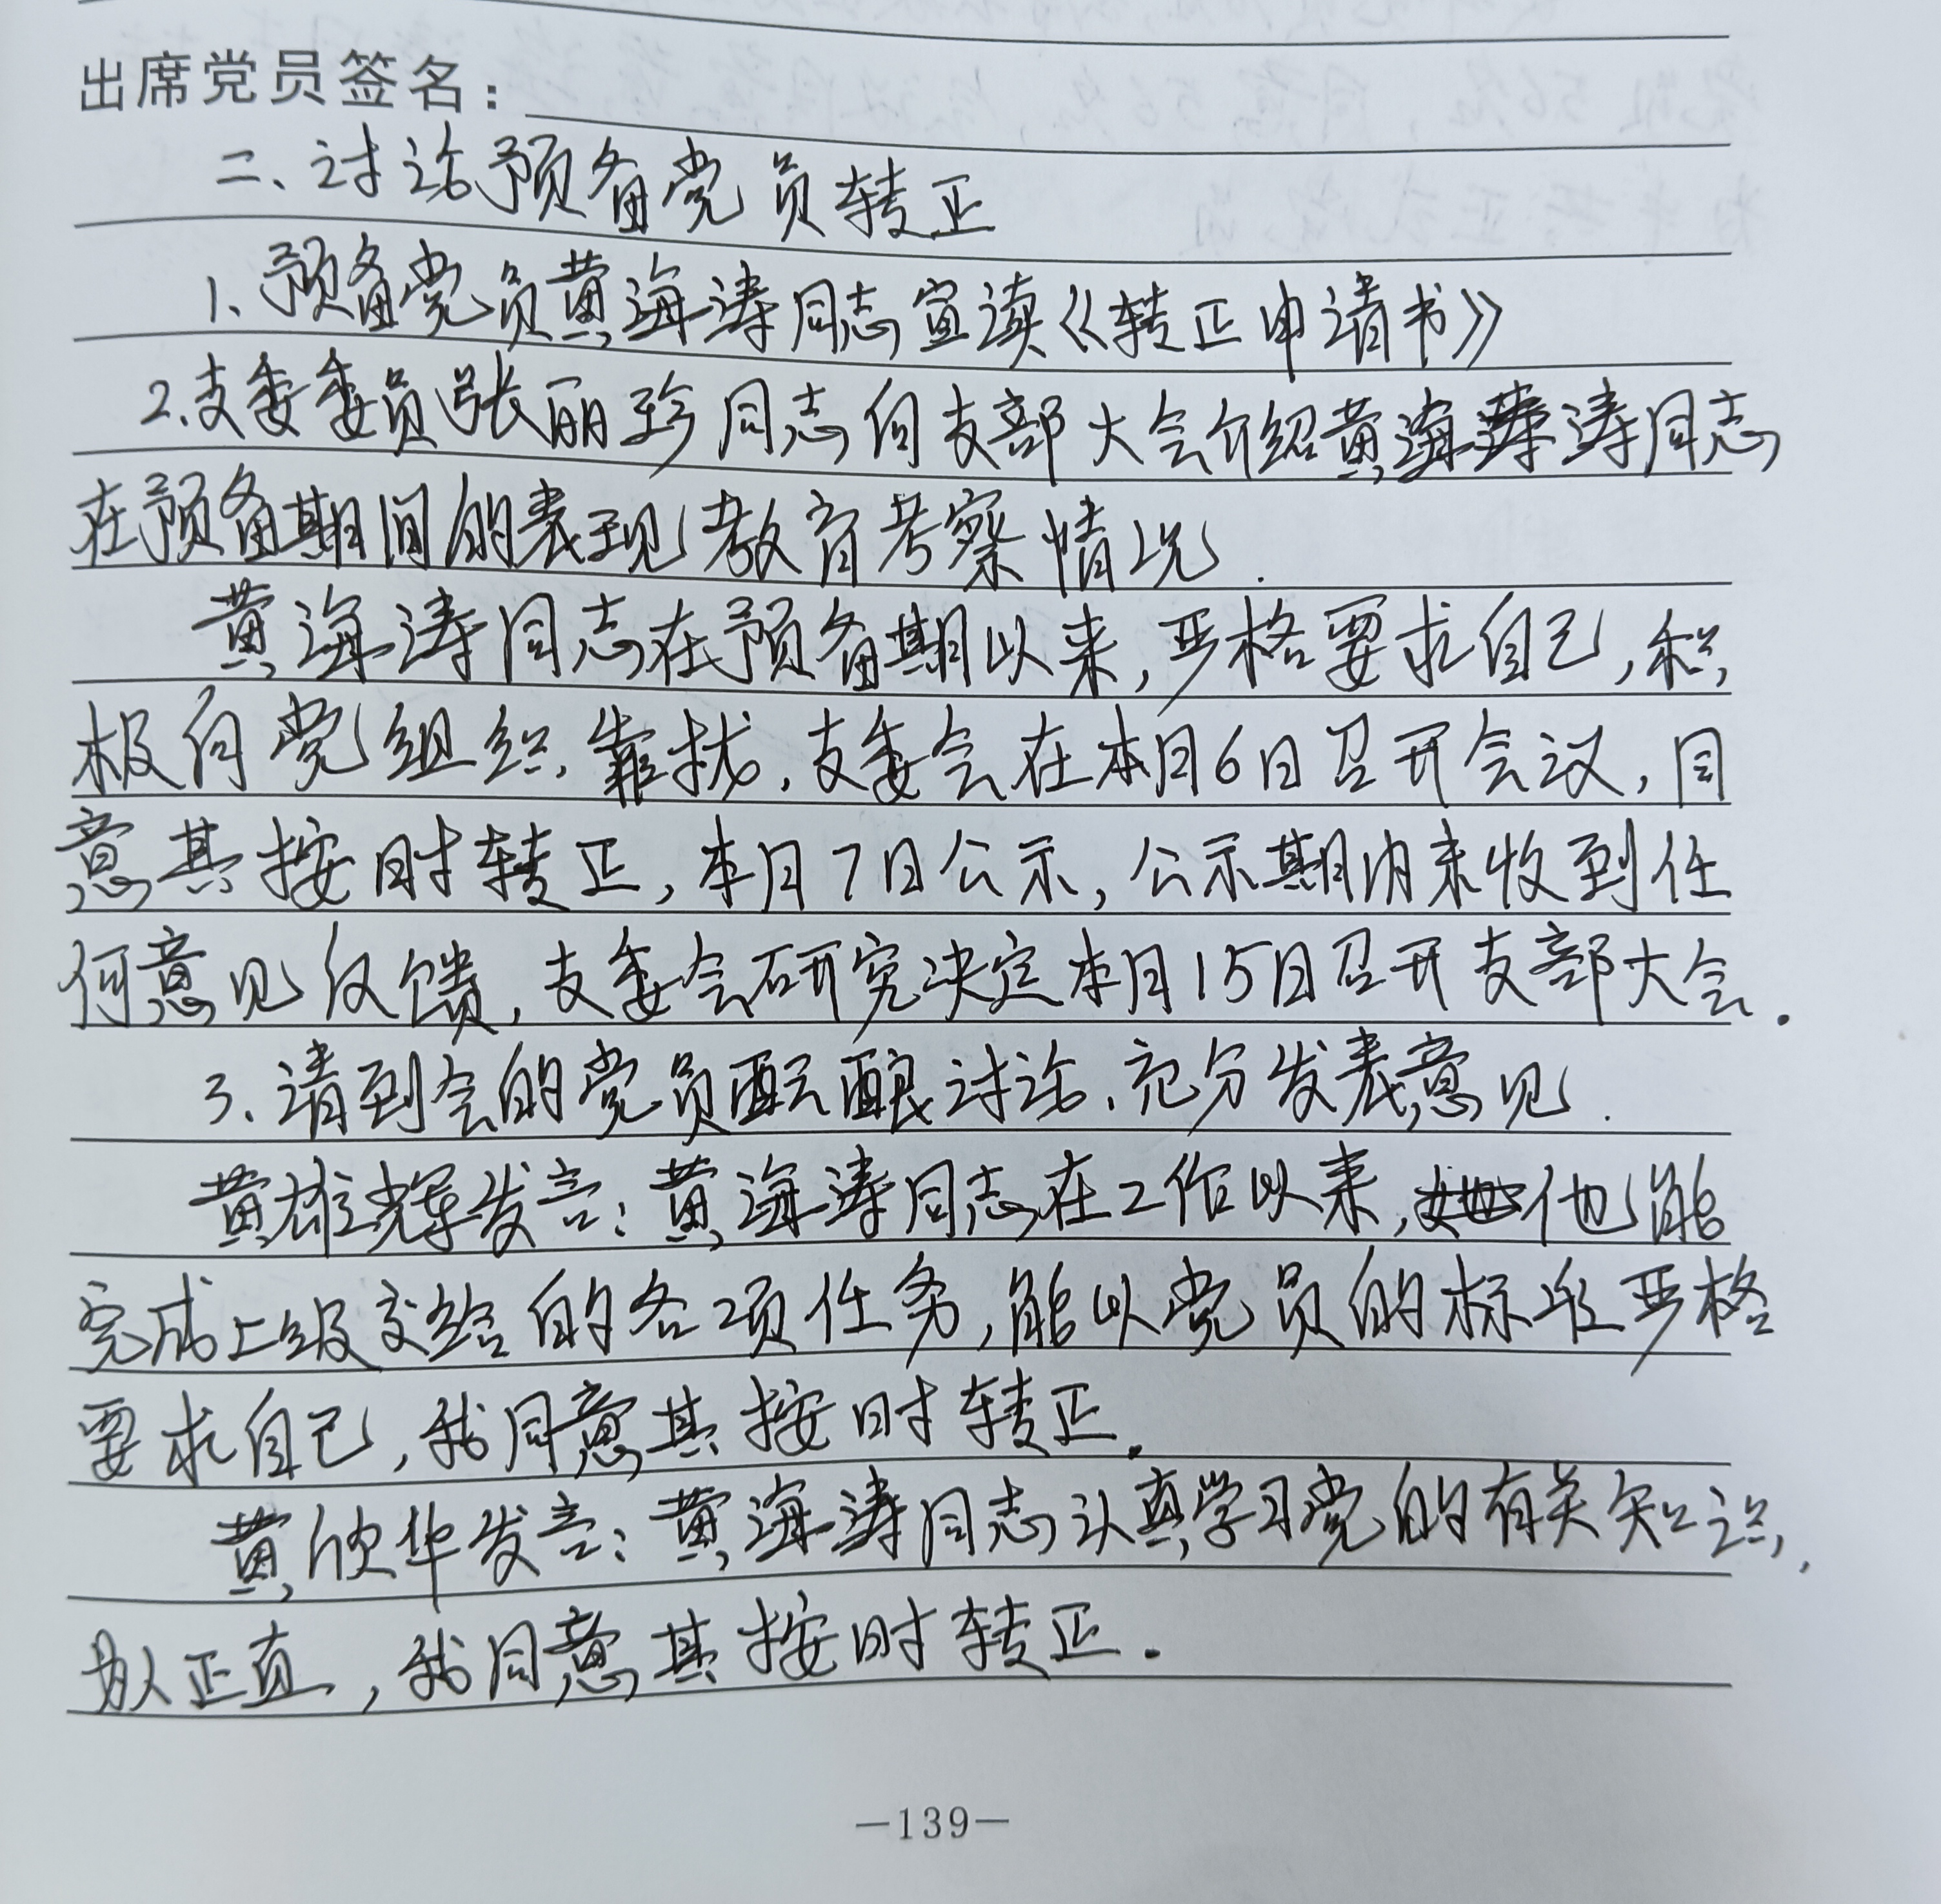 出席党员签名：
二、讨论预备党员转正
1、预备党员黄海涛同志宣读《转正申请书》
2、支委委员张丽珍同志向支部大会介绍黄海涛同志
在预备期间的表现教育考察情况.
黄海涛同志在预备期以来,严格要求自己,积
极向党组织靠拢,支委会在本月6日召开会议,同
意其按时转正,本月7日公示,公示期内未收到任
何意见反馈,支委会研究决定本月15日召开支部大会.
3、请到会的党员酝酿讨论,充分发表意见.
黄雄辉发言:黄海涛同志在工作以来,他能
完成上级交给的各项任务,能以党员的标准严格
要求自己,我同意其按时转正.
黄欣华发言:黄海涛同志认真学习党的有关知识,
为人正直,我同意其按时转正.
—139—